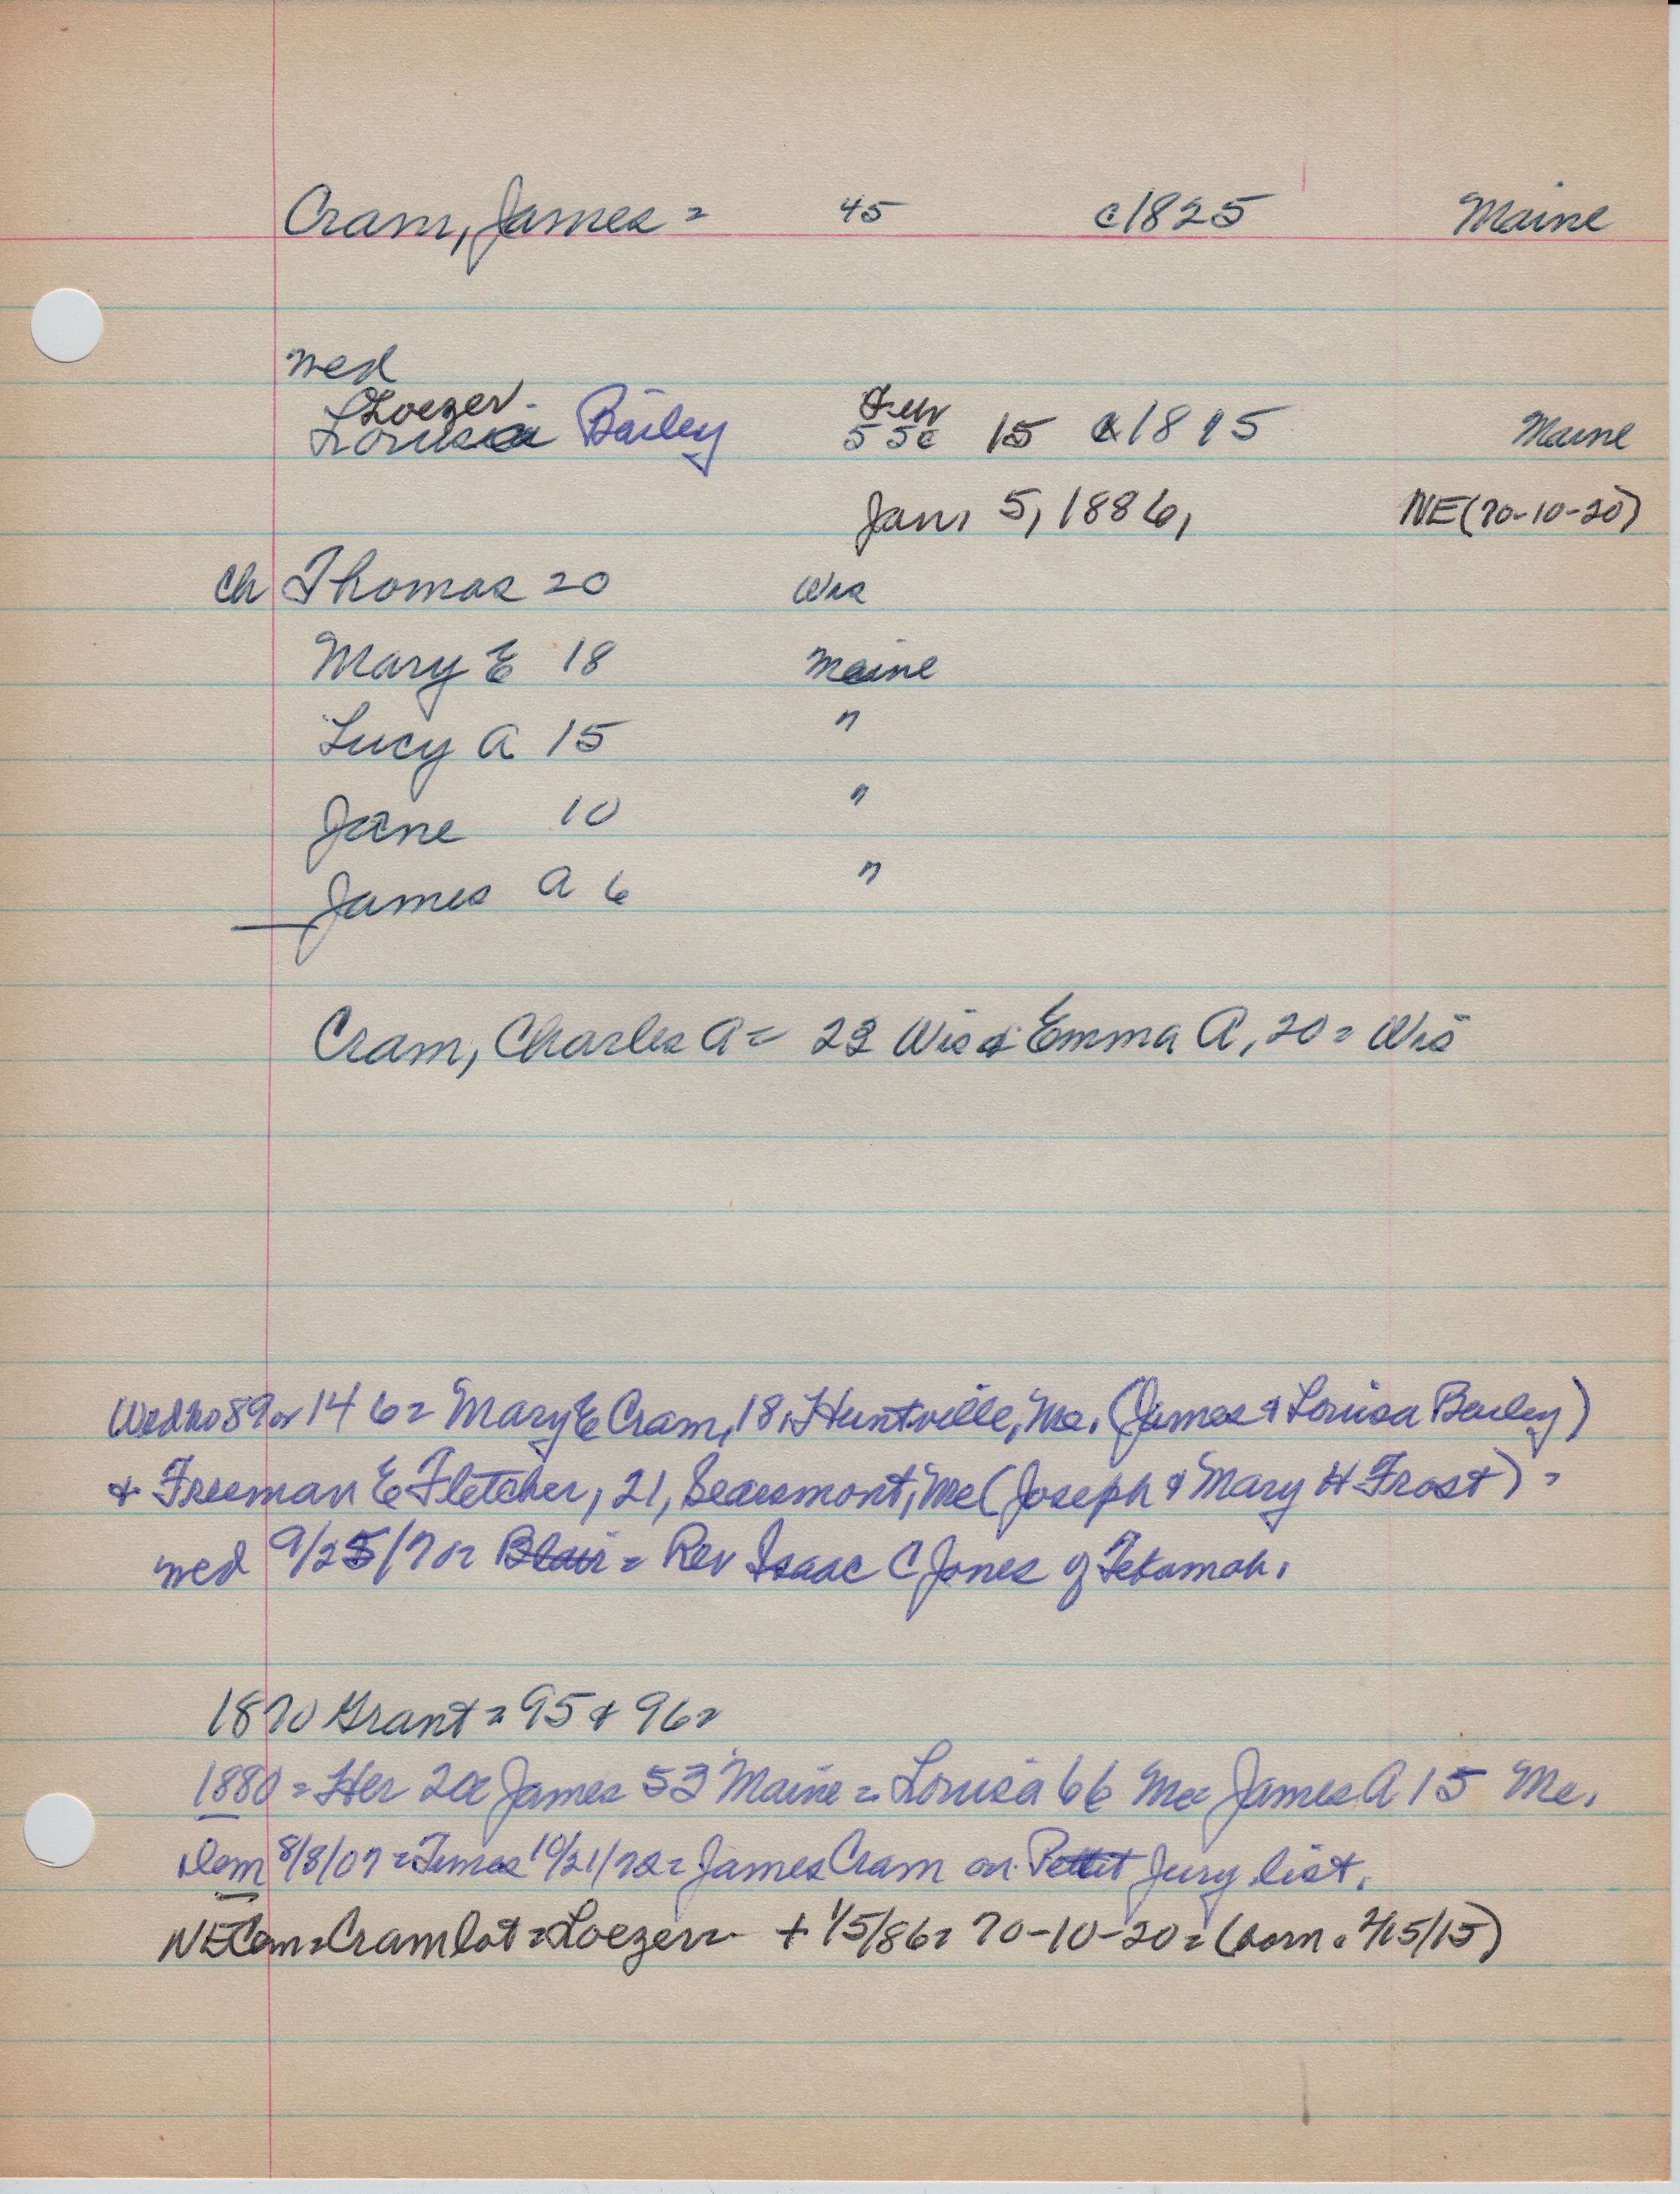 Cram, James = 45 c1825 Maine
wed
Loezer
Louisa Bailey Feb 55c 15 1815 Maine
Jan. 5, 1886, NE(70-10-20)
Ch Thomas 20 Wis
Mary E 18 Maine
Lucy A 15 "
Jane 10 "
James A 6 "
Cram, Charles A = 22 Wis & Emma A, 20 = Wis
Wed no 89 or 146 = Mary E Cram, 18, Huntville, Me. (James & Louisa Bailey)
+ Freeman E Fletcher, 21, Searsmont, Me (Joseph & Mary H Frost) =
wed 9/25/70 = Blair = Rev Isaac C Jones of Tekamah.
1870 Grant = 95 & 96 =
1880 = Her James 53 Maine = Louisa 66 Me = James A 15 Me.
Dem 8/8/07 = Times 10/21/72 = James Cram on Pettit Jury list.
NE Cem = Cram lot = Loezer = + 1/5/86 = 70-10-20 = (born = 2/15/15)